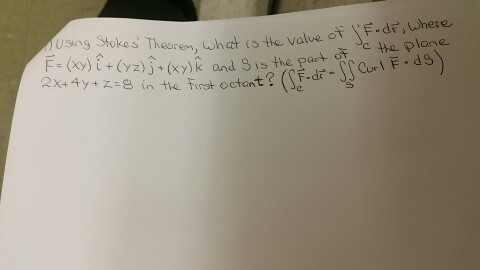 1) Using Stokes' Theorem, what is the value of ∫_C F⃗·dr⃗, where
F⃗ = (xy) î + (yz) ĵ + (xy) k̂ and S is the part of the plane
2x+4y+z=8 in the first octant? (∫_C F⃗·dr⃗ = ∬_S Curl F⃗·dS)